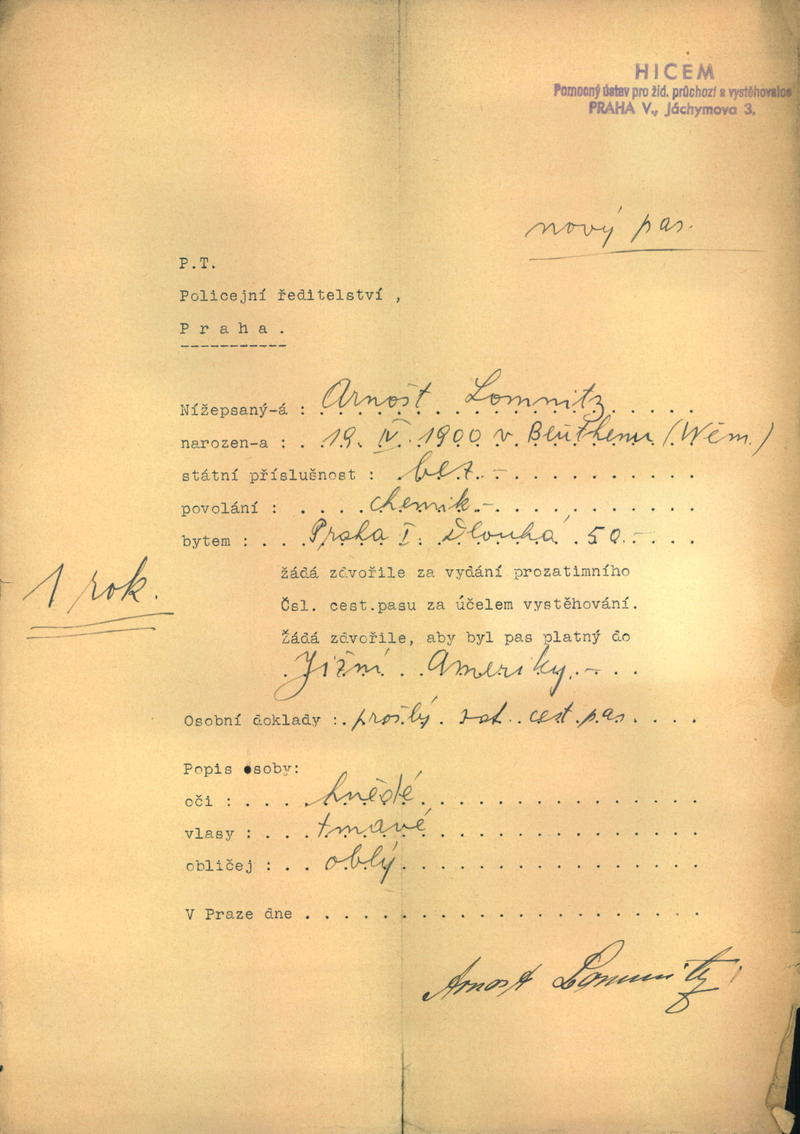 HICEM
Pomocný ústav pro žid. průchozí a vystěhovalce
PRAHA V., Jáchymova 3.
nový pas.
P.T.
Policejní ředitelství ,
P r a h a .
Nížepsaný-á : Arnošt Lomnitz
narozen-a : 19. IV. 1900 v Beuthenu (Něm.)
státní příslušnost : bez.-
povolání : chemik.-
bytem : Praha I. Dlouhá 50.-
žádá zdvořile za vydání prozatimního
1 rok.
Čsl. cest.pasu za účelem vystěhování.
Žádá zdvořile, aby byl pas platný do
Jižní Ameriky.-
Osobní doklady : prošlý cest. pas
Popis osoby:
oči : hnědé
vlasy : tmavé
obličej : oblý
V Praze dne
Arnošt Lomnitz